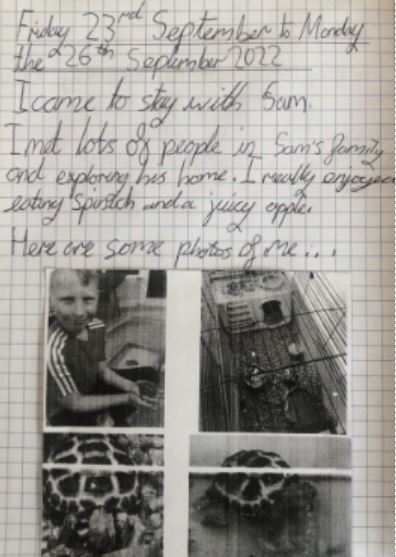 Friday 23rd September to Monday
the 26th September 2022
I came to stay with Sam.
I met lots of people in Sam's family
and exploring his home. I really enjoyed
eating Spinich and a juicy apple.
Here are some photos of me...